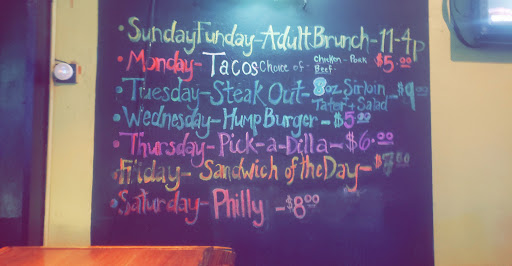 • Sunday Funday - Adult Brunch - 11-4p
• Monday - Tacos Choice of - Chicken - Pork Beef - $5.00
• Tuesday - Steak Out - 8oz Sirloin Tater + Salad - $9.00
• Wednesday - Hump Burger - $5.00
• Thursday - Pick-a-Dilla - $6.00
• Friday - Sandwich of the Day - $7.00
• Saturday - Philly - $8.00